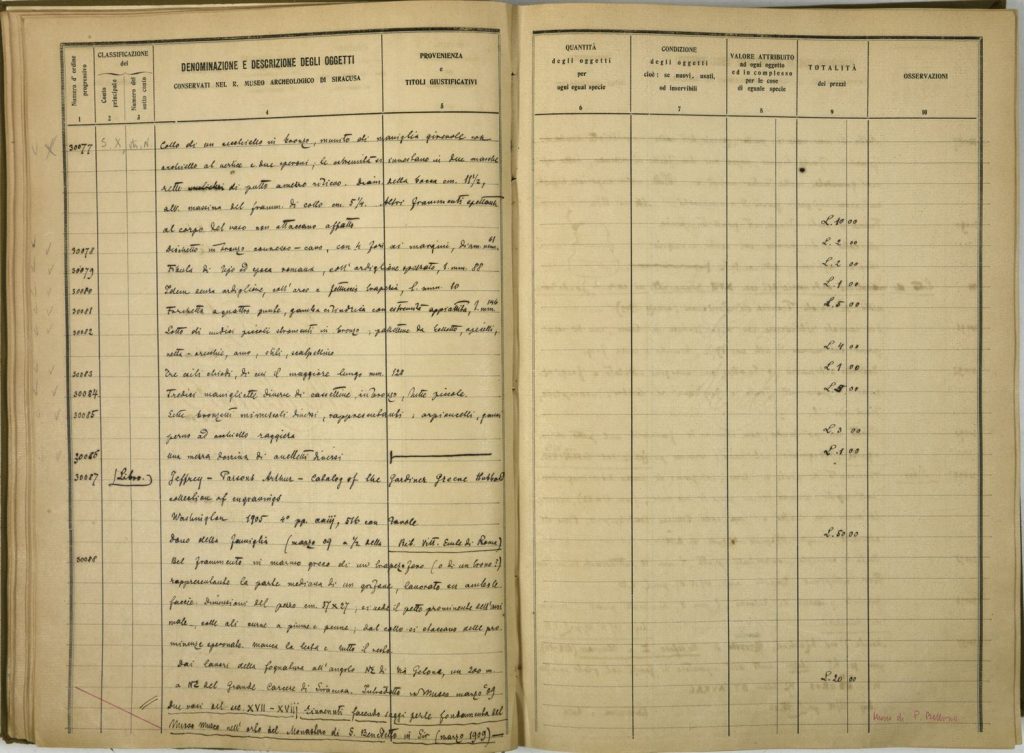 Numero d' ordine progressivo
CLASSIFICAZIONE del
Conto principale
Numero del sotto conto
DENOMINAZIONE E DESCRIZIONE DEGLI OGGETTI
CONSERVATI NEL R. MUSEO ARCHEOLOGICO DI SIRACUSA
PROVENIENZA
E
TITOLI GIUSTIFICATIVI
1 2 3 4 5
QUANTITÀ
degli oggetti
per
ogni egual specie
6
CONDIZIONE
degli oggetti
cioè: se nuovi, usati,
od inservibili
7
VALORE ATTRIBUITO
ad ogni oggetto
ed in complesso
per le cose
di eguale specie
8
TOTALITÀ
dei prezzi
9
OSSERVAZIONI
10
30077 S. X Collo di un secchiello in bronzo, munito di maniglia girevole con
occhiello al vertice e due speroni; le estremità si innestano in due masche
rette di putto Diam. della bocca cm. 11 1/2,
alt. massima del framm. di collo cm 5 1/4. Altri frammenti spettanti
al corpo del vaso non attaccano affatto L. 10 00
30078 Dischetto in bronzo convesso-cavo, con 4 fori ai margini, diam mm. 61 L. 2 00
30079 Fibula di tipo ad epoca romana, coll'ardiglione spezzato, l. mm. 88 L. 2 00
30080 Idem senza ardiglione, coll'arco a fettuccia L. mm 10 L. 1 00
30081 Forchetta a quattro punte, gamba cilindrica con estremità appiattita, l. mm 146 L. 5 00
30082 Lotto di undici piccoli strumenti in bronzo; palettine da belletto, specilli,
netta-orecchie, amo, stili, scalpellino L. 4 00
30083 Tre esili chiodi, di cui il maggiore lungo mm. 128 L. 1 00
30084 Tredici manigliette diverse di cassettine, in bronzo, tutte piccole. L. 5 00
30085 Sette bronzetti minuscoli diversi, rappresentanti; arpioncelli,
perno ad occhiello raggiera L. 3 00
30086 una mezza dozzina di anelletti diversi L. 1 00
30087 (Libro.) Jeffrey - Parsons Arthur - Catalog of the Gardiner Greene Hubbard
collection of engravings
Washington 1905 4° pp. xxiij, 516 con tavole
Dono della famiglia (marzo 09 a 1/2 della Bib. Vitt. Emle di Roma) L. 50 00
30088 Bel frammento in marmo greco di un trapezoforo (o di un trono?)
rappresentante la parte mediana di un grifone, lavorato su ambo le
faccie. Dimensioni del pezzo cm. 57 x 27; si vede il petto prominente dell'ani
male, colle ali curve a piume e penne; dal collo si staccano delle pro
minenze speronate. manca la testa e tutto il resto.
Dai lavori della fognatura all'angolo NE di via Gelona, un 200 m.
a NE del Grande Carcere di Siracusa. Introdotto in Museo marzo 09 L. 20 00
Due vasi del sec. XVII - XVIII rinvenuti facendo saggi per le fondamenta del
Nuovo Museo nell'orto del Monastero di S. Benedetto in Sir (marzo 1909)